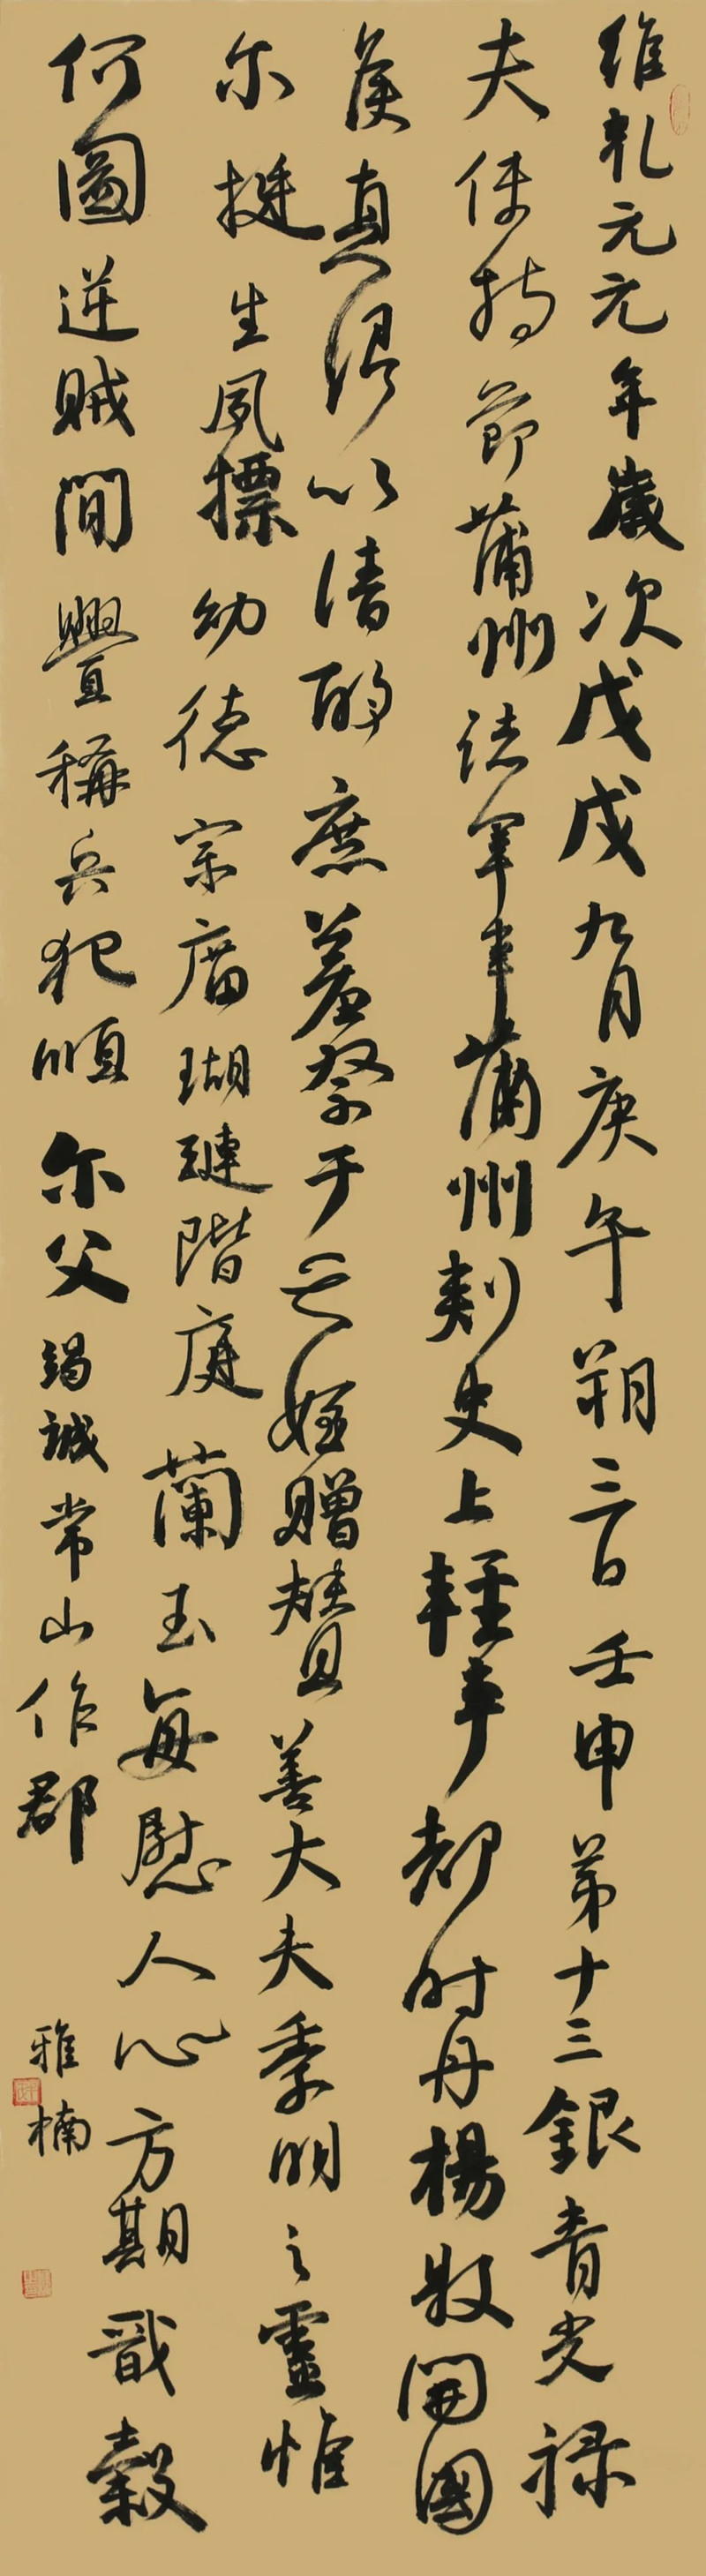 維乾元元年歲次戊戌九月庚午朔三日壬申第十三銀青光祿
夫使持節蒲州諸軍事蒲州刾史上輕車都尉丹楊縣開國
侯真卿以清酌庶羞祭于亡姪贈賛善大夫季明之靈惟
尔挺生夙標幼德宗廟瑚璉階庭蘭玉每慰人心方期戩穀
何圖逆賊間舋稱兵犯順尔父竭誠常山作郡
雅楠